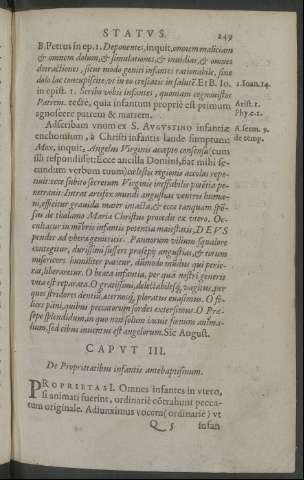 STATVS. 249
B. Petrus in ep. 1. Deponentes, inquit, omnem maliciam
& omnem dolum, & simulationes, & inuidias, & omnes
detractiones, sicut modo geniti infantes rationabile, sine
dolo lac concupiscite, vt in eo crescatis in salutē. Et B. Io. 1. Ioan. 14.
in epist. 1. Scribo vobis infantes, quoniam cognouistis
Patrem. rectè, quia infantum propriè est primum Arist. 1.
agnoscere patrem & matrem. Phy. c. 1.
Adscribam vnum ex S. AVGVSTINO infantiæ A serm. 9.
enchomium, à Christi infantis laude sumptum: de temp.
Mox, inquit, Angelus Virginis accepto consensu (cum
illi respondisset: Ecce ancilla Domini, fiat mihi se-
cundum verbum tuum) cælestis regionis accolas repe-
tiuit:
venerant. Intrat artifex mundi angustias ventris huma-
ni, efficitur grauida mater intacta, & ecce tanquam spō-
sus de thalamo Maria Christus procedit ex vtero. Oc-
cultatur in mēbris infantis potentia maiestatis, DEVS
pendet ad vbera genitricis. Pannorum vilium squalore
contegitur, durissimi suffert præsepij angustias, & rerum
misericors humiliter patitur, dūmodo mūdus qui perie-
rat, liberaretur. O beata infantia, per quā nostri generis
vita est reparata. O gratissimi, delectabilesq́; vagitus, per
quos stridores dentiū, æternosq́; ploratus euasimus. O fe-
lices pāni, quibus peccatorum sordes extersimus. O Præ-
sepe splendidum, in quo non solùm iacuit fœnum anima-
lium, sed cibus inuentus est angelorum. Sic August.
CAPVT III.
De Proprietatibus infantis antebaptismum.
PROPRIETAS I. Omnes infantes in vtero,
si animati fuerint, ordinariè cōtrahunt pecca-
tum originale. Adiunximus vocem (ordinariè) vt
Q 5 infan